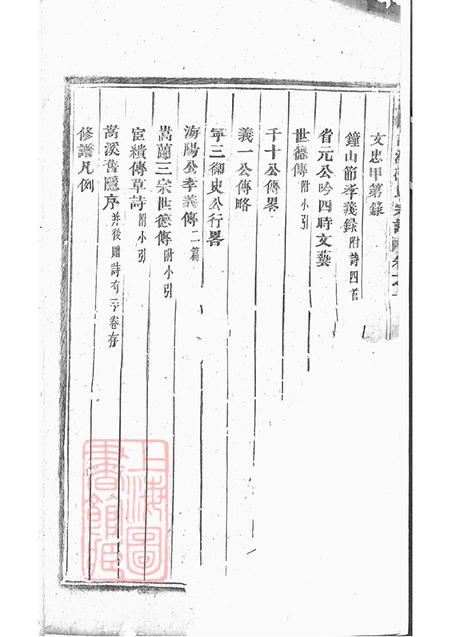 文忠甲第錄
鐘山節孝義錄附詩四首
省元公吟四時文藝
世德傳附小引
千十公傳畧
義一公傳略
寧三御史公行畧
海陽公孝義傳二篇
嵩蘭三宗世德傳附小引
宦績傳草詩附小引
嵩溪舊隱序并後賦詩有二卷存
修譜凡例
上海圖書館藏